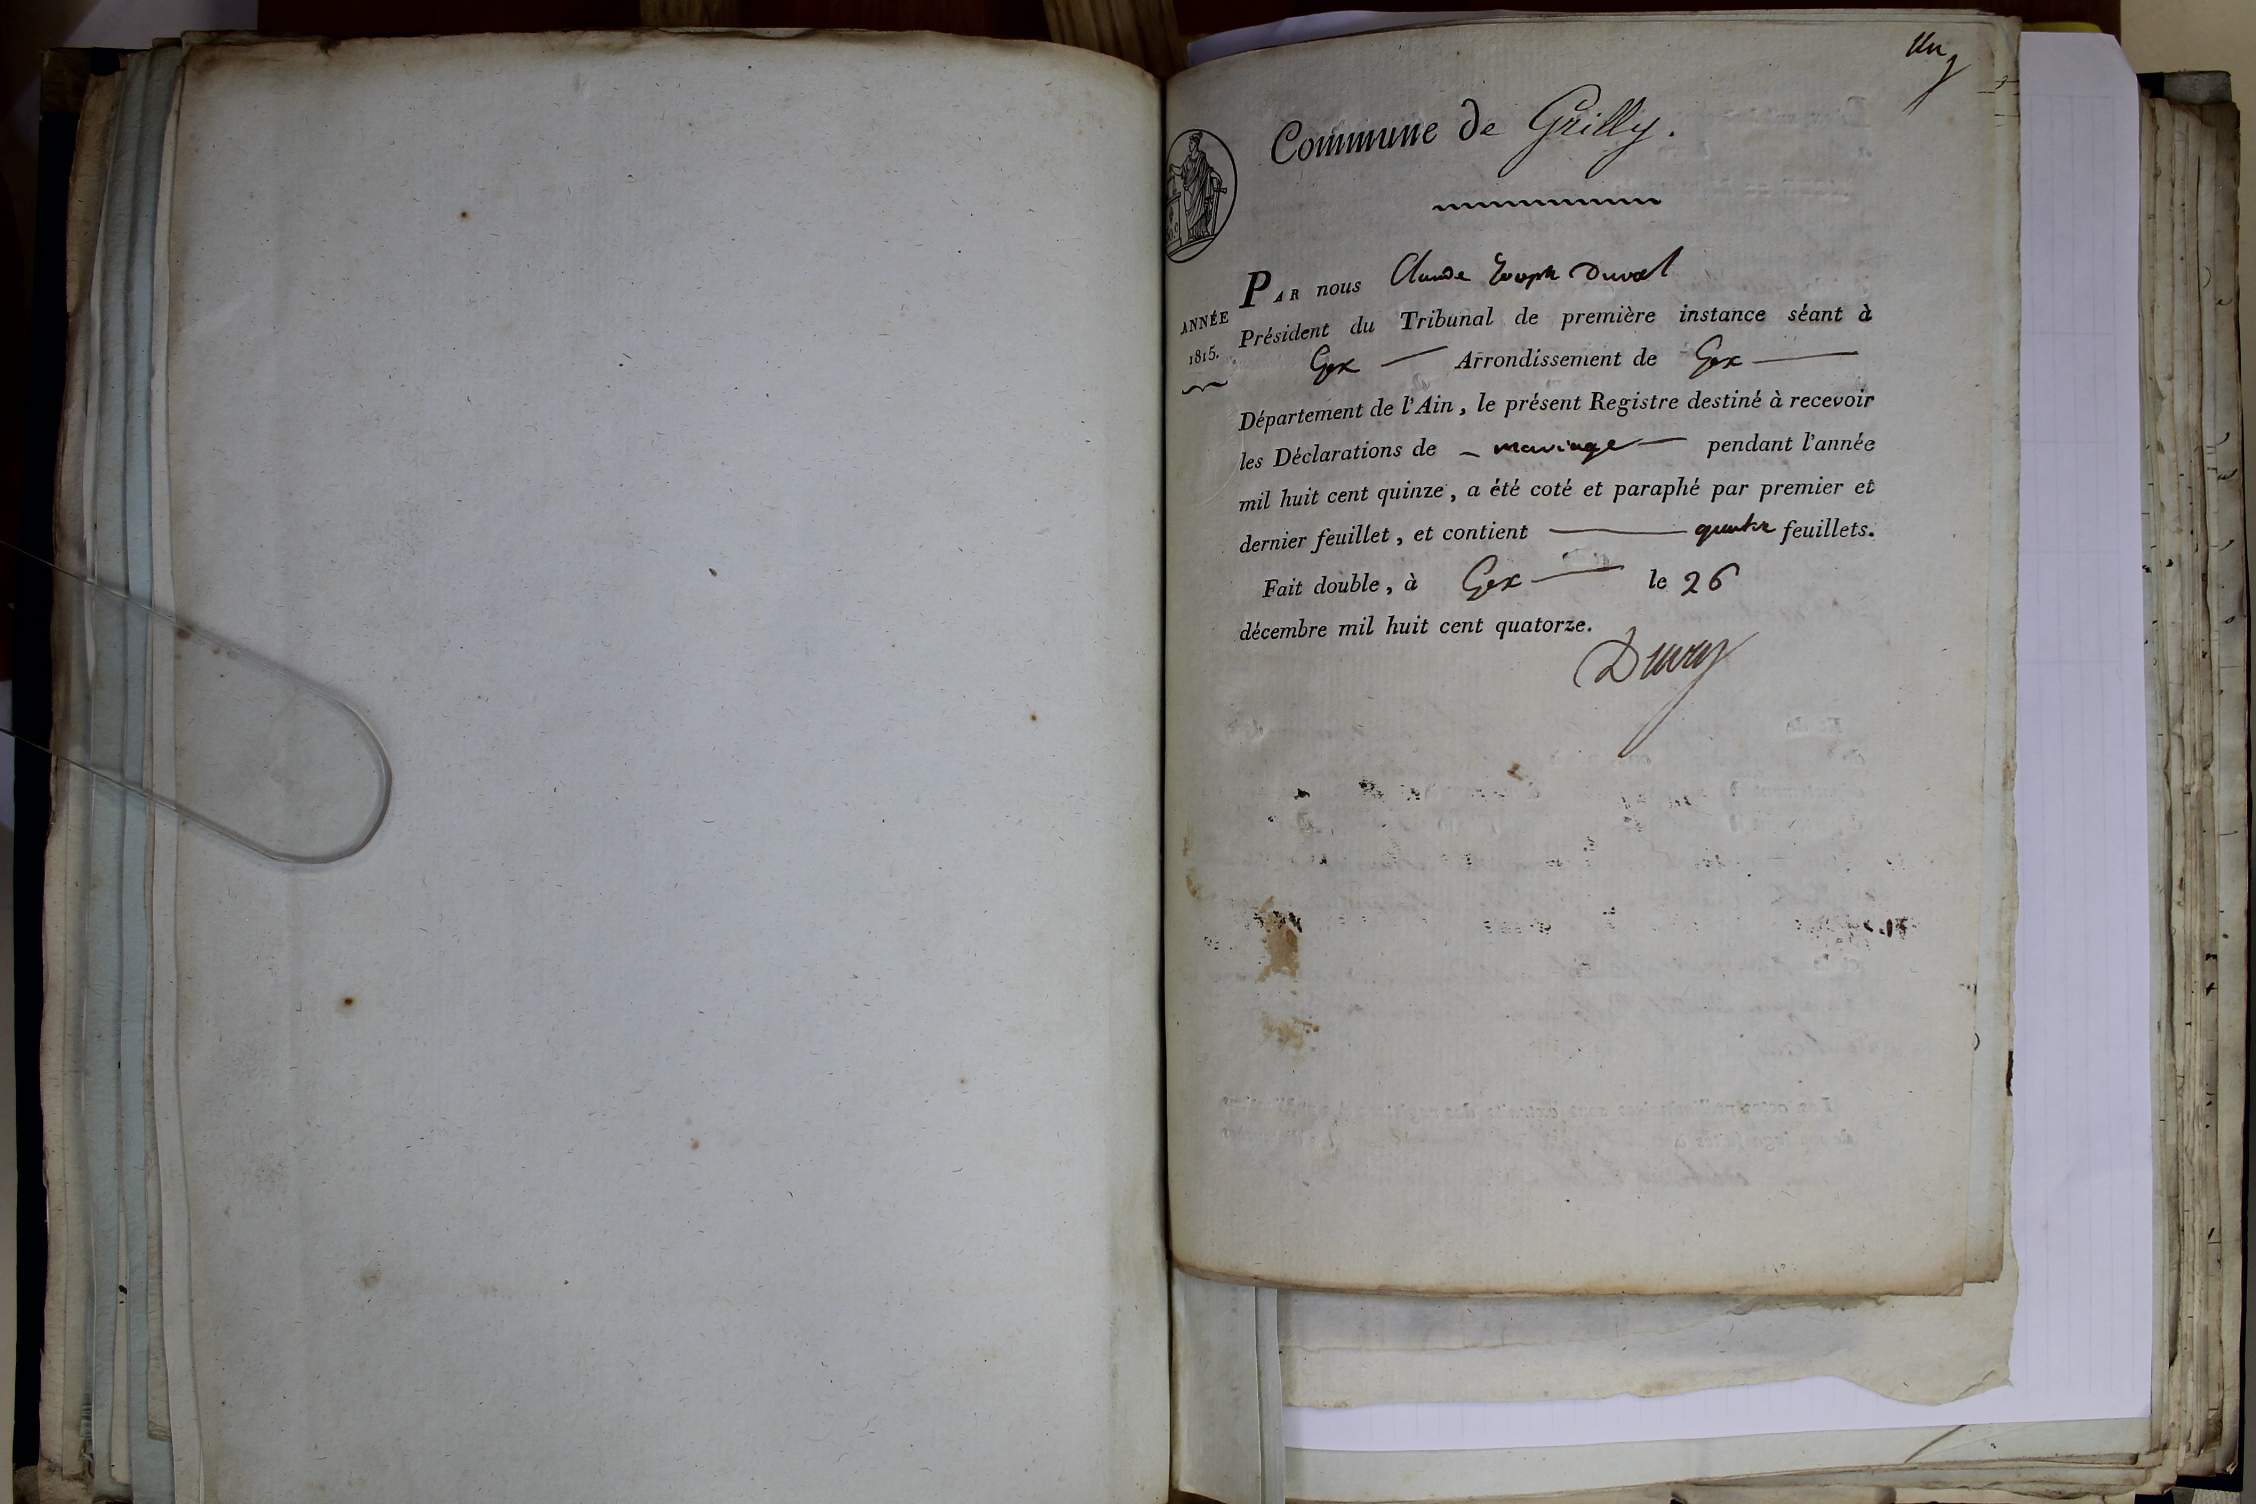 Un
Commune de Grilly.
PAR nous Claude Joseph Duval
ANNÉE
1815.
Président du Tribunal de première instance séant à
Gex — Arrondissement de Gex —
Département de l'Ain, le présent Registre destiné à recevoir
les Déclarations de — mariage — pendant l'année
mil huit cent quinze, a été coté et paraphé par premier et
dernier feuillet, et contient — quatre feuillets.
Fait double, à Gex — le 26
décembre mil huit cent quatorze.